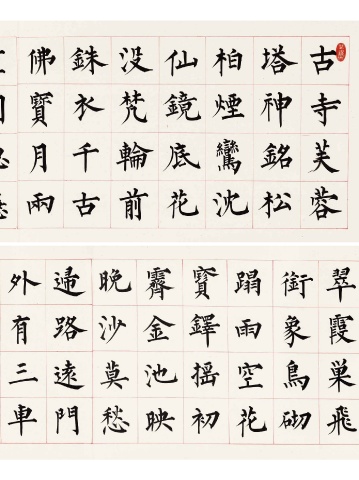 古寺芙蓉
塔神銘松
柏煙鸞沈
仙鏡底花
没梵輪前
銖衣千古
佛寶月兩
翠霞巢飛
銜象鳥砌
蹋雨空花
寶鐸摇初
霽金池映
晚沙莫愁
歸路遠門
外有三車